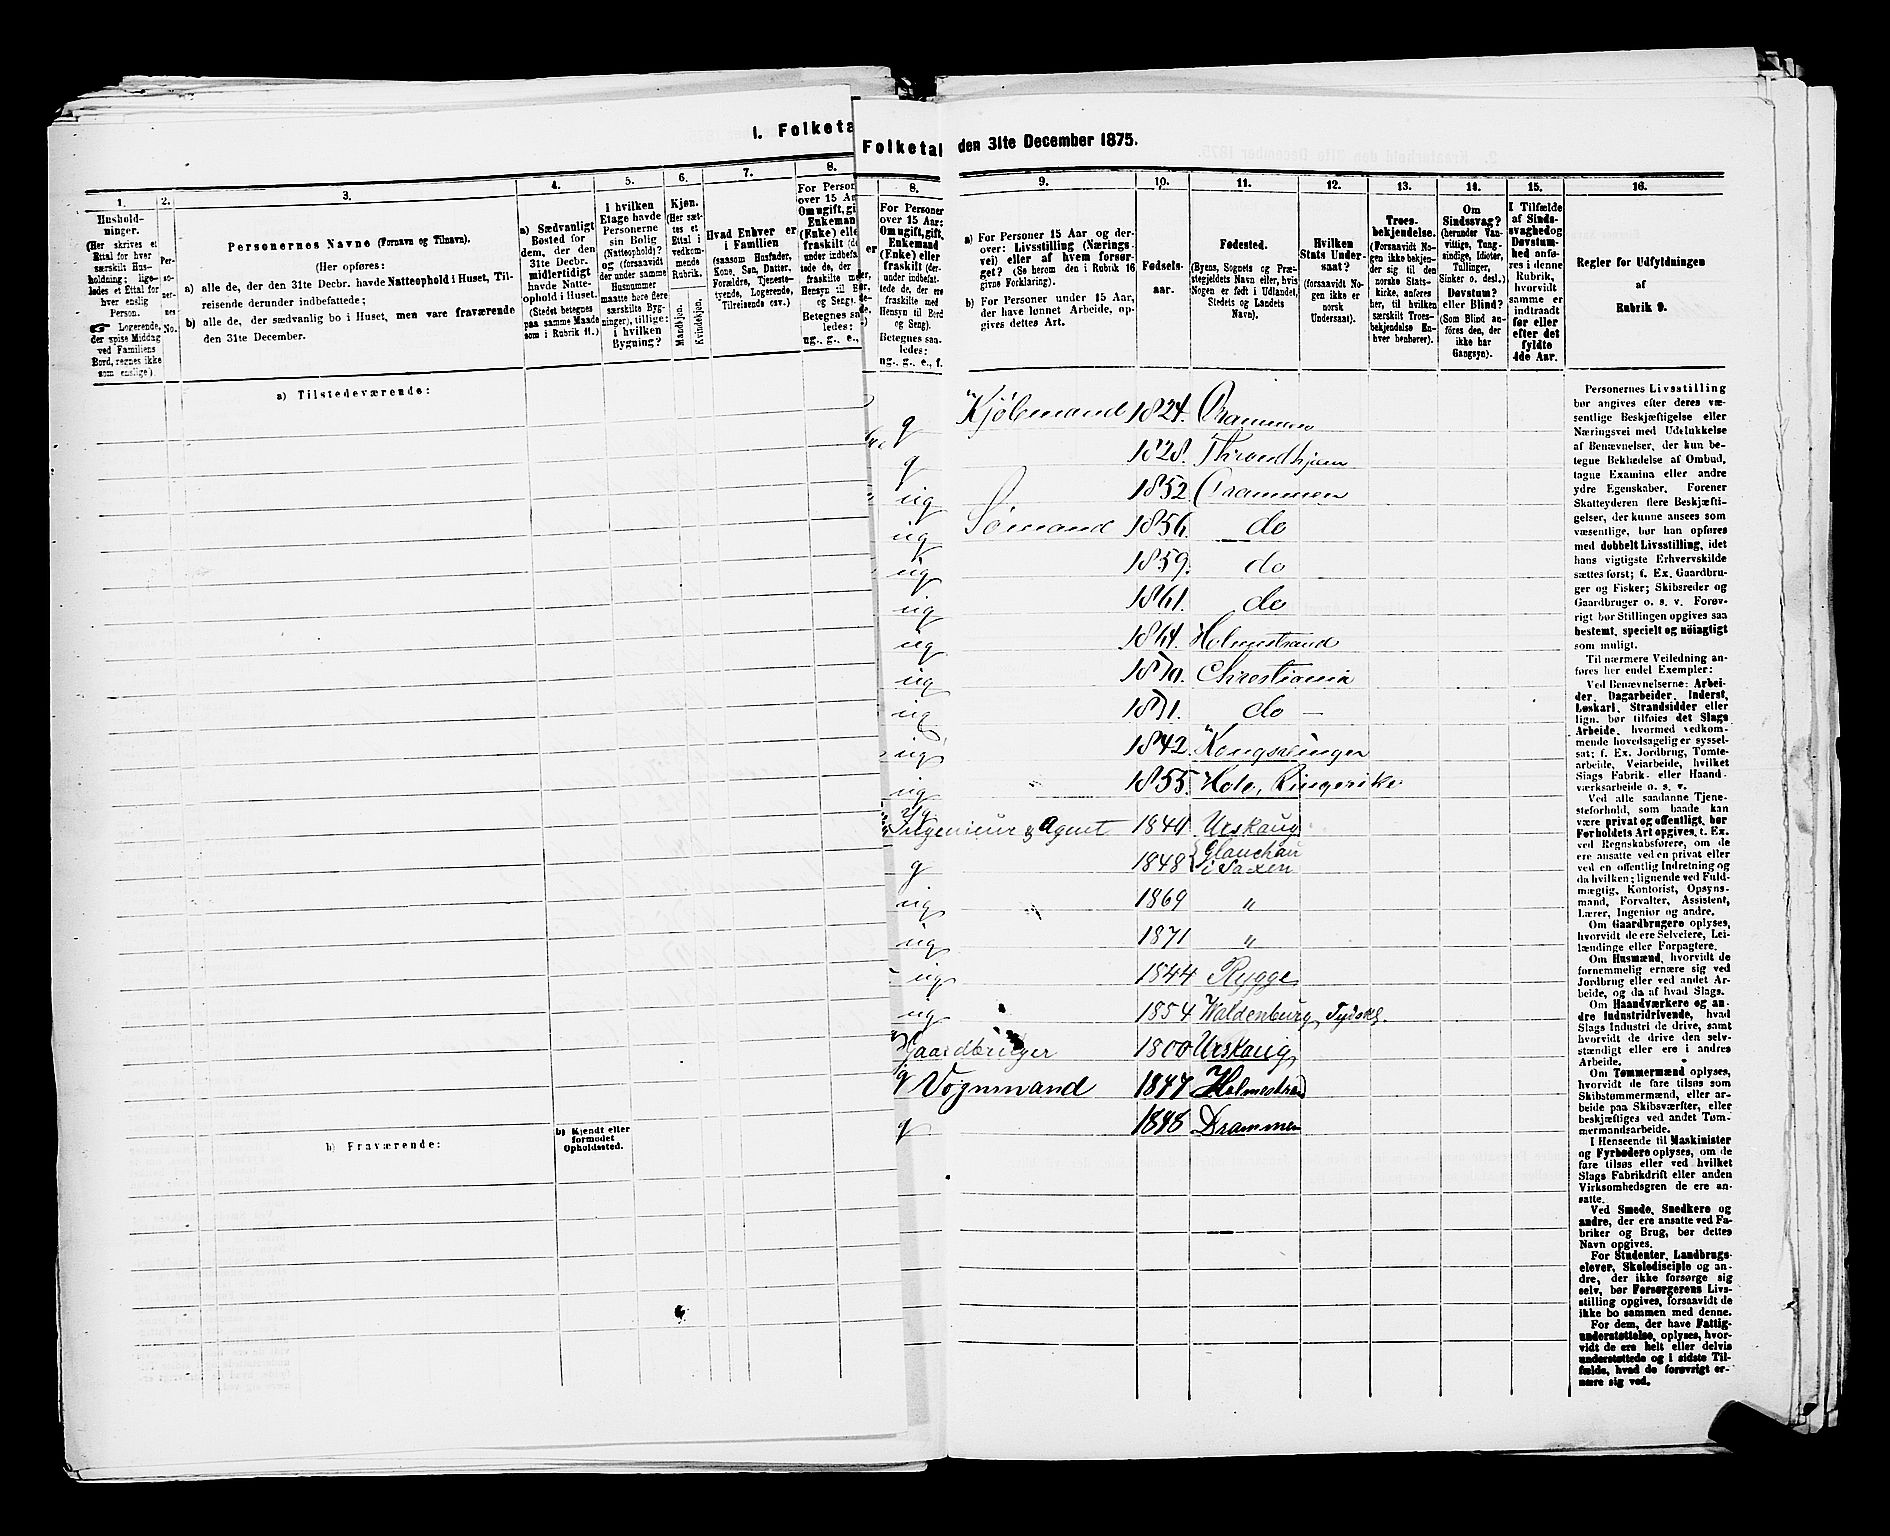 I. Folketa
1.
2.
3.
4.
5.
6.
7.
8.
Hushold-
ninger.
(Her skrives et
Ettal for hver
særskilt Hus-
holdning; lige-
ledes et Ettal for
hver enslig
Person.
☞ Logerende,
der spise Middag
ved Familiens
Bord, regnes ikke
som enslige).
Per-
so-
ner-
nes
No.
Personernes Navne (Fornavn og Tilnavn).
(Her opføres:
a) alle de, der den 31te Decbr. havde Natteophold i Huset, Til-
reisende derunder indbefattede;
b) alle de, der sædvanlig bo i Huset, men vare fraværende
den 31te December.
a) Sædvanligt
Bosted for
dem, der den
31te Decbr.
midlertidigt
havde Natte-
ophold i Huset.
(Stedet betegnes
paa samme Maade
som i Rubrik 11.)
I hvilken
Etage havde
Personerne
sin Bolig
(Natteophold)?
og (forsaavidt
der under samme
Husnummer
maatte høre flere
særskilte Byg-
ninger), tillige:
i hvilken
Bygning?
Kjøn.
(Her sæt-
tes et
Ettal i
vedkom-
mende
Rubrik.
Mandkjøn.
Kvindekjøn.
Hvad Enhver er
i Familien
(saasom Husfader,
Kone, Søn, Datter,
Forældre, Tjeneste-
tyende, Logerende,
Tilreisende osv.)
For Person
over 15 Aar
Om ugift, gi
Enkemand
(Enke) elle
fraskilt (d
under indbefat-
tede de, der er
fraskilte me
Hensyn til B
og Seng).
Betegnes sa
ledes:
ug., g., e.,
a) Tilstedeværende:
b) Fraværende:
b) Kjendt eller
formodet
Opholdssted.
Folketal den 31te December 1875.
8.
9.
10.
11.
12.
13.
14.
15.
16.
For Personer
over 15 Aar:
Om ugift, gift,
Enkemand
(Enke) eller
fraskilt (der-
under indbefat-
tede de, der ere
fraskilte med
Hensyn til Bord
og Seng).
Betegnes saa-
ledes:
ug., g., e., f.
a) For Personer 15 Aar og der-
over: Livsstilling (Nærings-
vei) eller af hvem forsør-
get? (Se herom den i Rubrik 16
givne Forklaring).
b) For Personer under 15 Aar,
der have lønnet Arbeide, op-
gives dettes Art.
Fødsels-
aar.
Fødested.
(Byens, Sognets og Præ-
stegjeldets Navn eller, hvis
Nogen er født i Udlandet,
Stedets og Landets
Navn).
Hvilken
Stats Under-
saat?
(forsaavidt No-
gen ikke er
norsk
Undersaat).
Troes-
bekjendelse.
(Forsaavidt No-
gen ikke bekjen-
der sig til den
norske Stats-
kirke, anføres
her, til hvilken
særskilt Troes-
bekjendelse En-
hver henhører).
Om
Sindssvag?
(herunder Van-
vittige, Tung-
sindige, Idioter,
Tullinger,
Sinker o. desl.).
Døvstum?
eller Blind?
(Som Blind an-
føres den, der
ikke har
Gangsyn).
I Tilfælde
af Sinds-
svaghed og
Døvstum-
hed anfø-
res i denne
Rubrik,
hvorvidt
samme er
indtraadt
før eller
efter det
fyldte
4de Aar.
Regler for Udfyldningen
af
Rubrik 9.
g Kjølemand 1824. Drammen
g 1828. Throndhjem
ug 1852 Drammen
ug Sømand 1856. do
ug 1859. do
ug 1861. do
ug 1864. Holmestrand
ug 1870. Christiania
ug 1871. do —
ug 1842. Kongsvinger
ug 1855. Hole, Ringerike
g Ingeniør & Agent 1841 Urskoug
g 1848 Glauchau
i Saxen
ug 1869 "
ug 1871 "
ug 1844 Rygge
ug 1854 Waldenburg Tydskl.
Gaardbruger 1800 Urskoug
g Vognmand 1847 Holmestrand
g 1848 Drammen
Personernes Livsstilling
bør angives efter deres væ-
sentlige Beskjæftigelse eller
Næringsvei med Udelukkelse
af Benævnelser, der kun be-
tegne Beklædelse af Ombud,
tagne Examina eller andre
ydre Egenskaber. Forener
Skatteyderen flere Beskjæfti-
gelser, der kunne ansees som
væsentlige, bør han opføres
med dobbelt Livsstilling, idet
hans vigtigste Erhvervskilde
sættes først; f. Ex. Gaardbru-
ger og Fisker; Skibsreder og
Gaardbruger o. s. v. Forøv-
rigt bør Stillingen opgives saa
bestemt, specielt og nøiagtigt
som muligt.
Til nærmere Veiledning an-
føres her endel Exempler:
Ved Benævnelserne: Arbei-
der, Dagarbeider, Inderst,
Løskarl, Strandsidder eller
lign. bør tilføies det Slags
Arbeide, hvormed vedkom-
mende hovedsagelig er syssel-
sat; f. Ex. Jordbrug, Tomte-
arbeide, Veiarbeide, hvilket
Slags Fabrik- eller Haand-
værksarbeide o. s. v.
Ved alle saadanne Tjene-
steforhold, som baade kan
være privat og offentligt, bør
Forholdets Art opgives, t. Ex.
ved Regnskabsførere, om de
ere ansatte ved en privat eller
ved en offentlig Indretning og
da hvilken; lignende ved Fuld-
mægtig, Kontorist, Opsyns-
mand, Forvalter, Assistent,
Lærer, Ingeniør og andre.
Om Gaardbrugere oplyses,
hvorvidt de ere Selveiere, Lei-
lændinge eller Forpagtere.
Om Husmænd, hvorvidt de
fornemmelig ernære sig ved
Jordbrug eller ved andet Ar-
beide, og da af hvad Slags.
Om Haandværkere og an-
dre Industridrivende, hvad
Slags Industri de drive, samt
hvorvidt de drive den selv-
stændigt eller ere i andres
Arbeide.
Om Tømmermænd oplyses,
hvorvidt de fare tilsøs som
Skibstømmermænd, eller ar-
beide paa Skibsværfter, eller
beskjæftiges ved andet Tøm-
mermandsarbeide.
I Henseende til Maskinister
og Fyrbødere oplyses, om de
fare tilsøs eller ved hvilket
Slags Fabrikdrift eller anden
Virksomhedsgren de ere an-
satte.
Ved Smede, Snedkere og
andre, der ere ansatte ved Fa-
briker og Brug, bør dettes
Navn opgives.
For Studenter, Landbrugs-
elever, Skoledisciple og an-
dre, der ikke forsørge sig
selv, bør Forsørgerens Livs-
stilling opgives, forsaavidt de
ikke bo sammen med denne.
For dem, der have Fattig-
understøttelse, oplyses, hvor-
vidt de ere helt eller delvis
understøttede og i sidste Til-
fælde, hvad de forøvrigt er-
nære sig ved.